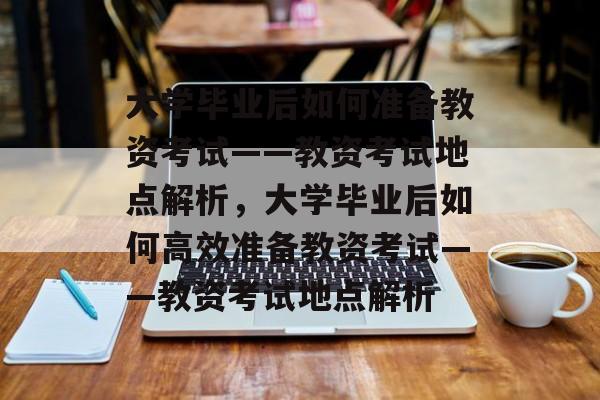 大学毕业后如何准备教
资考试——教资考试地
点解析，大学毕业后如
何高效准备教资考试—
—教资考试地点解析